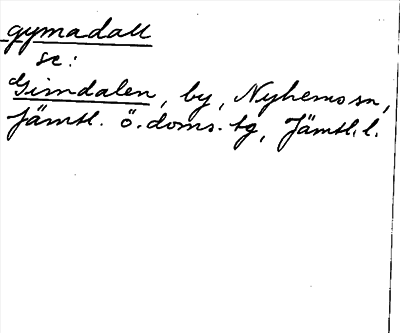 gymadall
se:
Gimdalen, by, Nyhems sn,
Jämtl. ö. doms. tg, Jämtl. l.